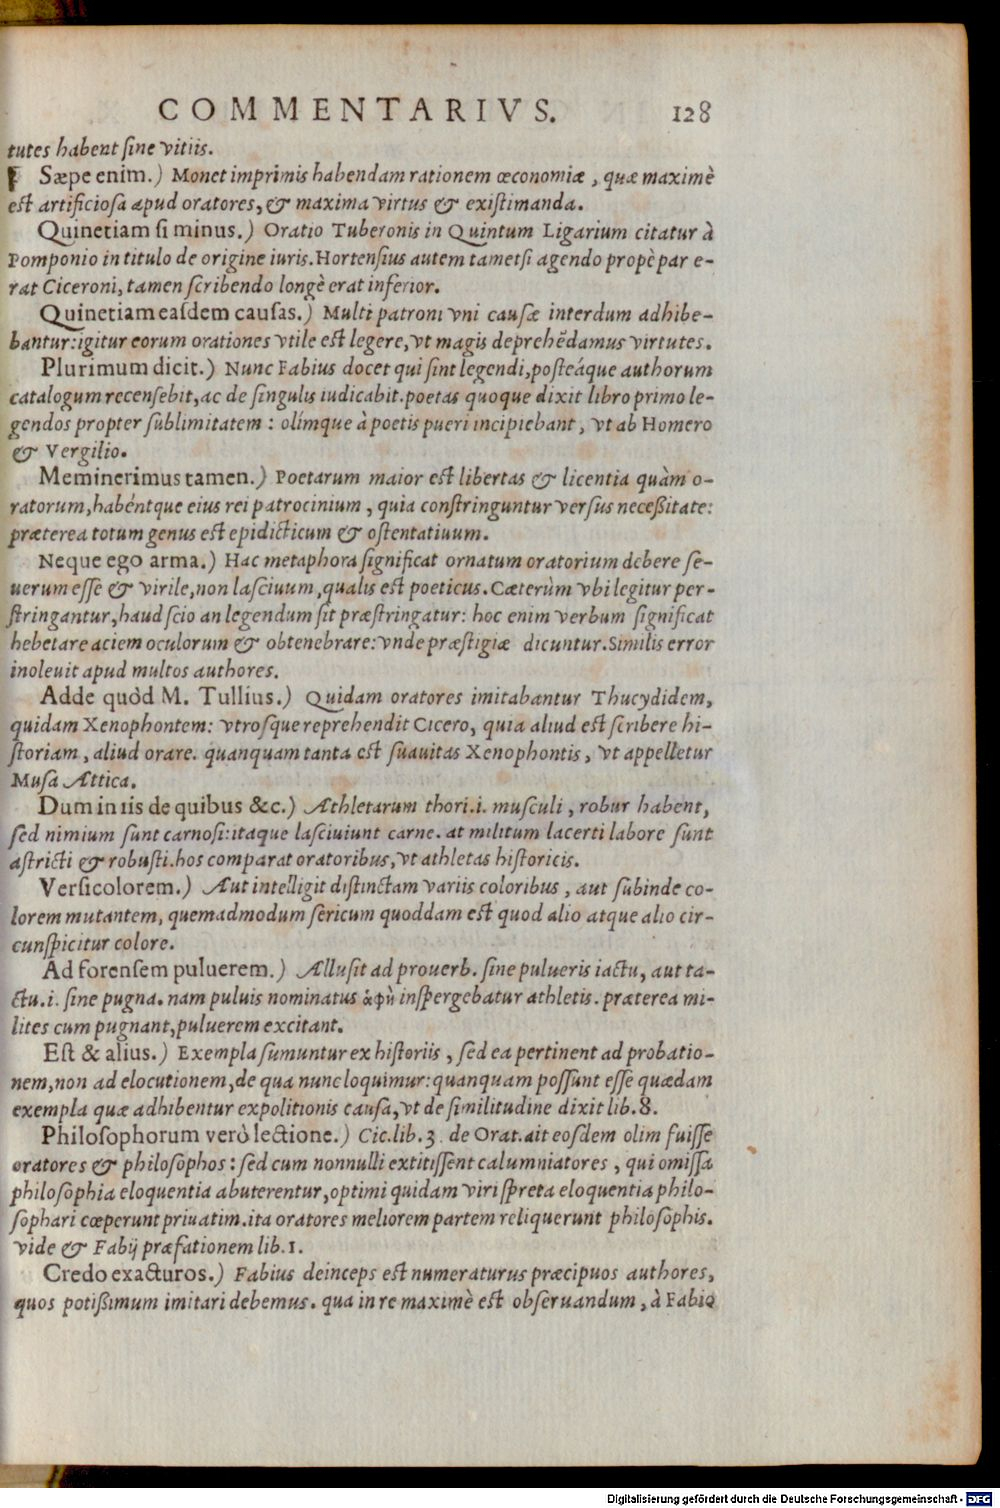 COMMENTARIVS. 128
tutes habent sine vitiis.
Sæpe enim.) Monet imprimis habendam rationem œconomiæ, quæ maximè
est artificiosa apud oratores, & maxima virtus & existimanda.
Quinetiam si minus.) Oratio Tuberonis in Quintum Ligarium citatur à
Pomponio in titulo de origine iuris. Hortensius autem tametsi agendo propè par e-
rat Ciceroni, tamen scribendo longè erat inferior.
Quinetiam easdem causas.) Multi patroni vni causæ interdum adhibe-
bantur: igitur eorum orationes vtile est legere, vt magis deprehẽdamus virtutes.
Plurimum dicit.) Nunc Fabius docet qui sint legendi, posteáque authorum
catalogum recensebit, ac de singulis iudicabit. poetas quoque dixit libro primo le-
gendos propter sublimitatem : olímque à poetis pueri incipiebant, vt ab Homero
& Vergilio.
Meminerimus tamen.) Poetarum maior est libertas & licentia quàm o-
ratorum, habéntque eius rei patrocinium, quia constringuntur versus necessitate:
præterea totum genus est epidicticum & ostentatiuum.
Neque ego arma.) Hac metaphora significat ornatum oratorium debere se-
uerum esse & virile, non lasciuum, qualis est poeticus. Cæterùm vbi legitur per-
stringantur, haud scio an legendum sit præstringatur: hoc enim verbum significat
hebetare aciem oculorum & obtenebrare: vnde præstigiæ dicuntur. Similis error
inoleuit apud multos authores.
Adde quòd M. Tullius.) Quidam oratores imitabantur Thucydidem,
quidam Xenophontem: vtrosque reprehendit Cicero, quia aliud est scribere hi-
storiam, aliud orare. quanquam tanta est suauitas Xenophontis, vt appelletur
Musa Attica.
Dum in iis de quibus &c.) Athletarum thori .i. musculi, robur habent,
sed nimium sunt carnosi: itaque lasciuiunt carne. at militum lacerti labore sunt
astricti & robusti. hos comparat oratoribus, vt athletas historicis.
Versicolorem.) Aut intelligit distinctam variis coloribus, aut subinde co-
lorem mutantem, quemadmodum sericum quoddam est quod alio atque alio cir-
cunspicitur colore.
Ad forensem puluerem.) Allusit ad prouerb. sine pulueris iactu, aut ta-
ctu .i. sine pugna. nam puluis nominatus ἁφὴ inspergebatur athletis. præterea mi-
lites cum pugnant, puluerem excitant.
Est & alius.) Exempla sumuntur ex historiis, sed ea pertinent ad probatio-
nem, non ad elocutionem, de qua nunc loquimur: quanquam possunt esse quædam
exempla quæ adhibentur expolitionis causa, vt de similitudine dixit lib. 8.
Philosophorum verò lectione.) Cic. lib. 3. de Orat. ait eosdem olim fuisse
oratores & philosophos: sed cum nonnulli extitissent calumniatores, qui omissa
philosophia eloquentia abuterentur, optimi quidam viri spreta eloquentia philo-
sophari cœperunt priuatim. ita oratores meliorem partem reliquerunt philosophis.
vide & Fabij præfationem lib. 1.
Credo exacturos.) Fabius deinceps est numeraturus præcipuos authores,
quos potissimum imitari debemus. qua in re maximè est obseruandum, à Fabio
Digitalisierung gefördert durch die Deutsche Forschungsgemeinschaft - DFG